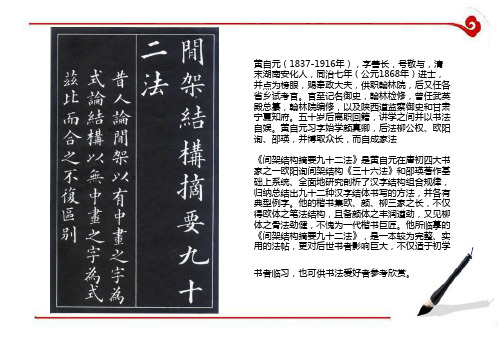 閒架結構摘要九十
二法
昔人論閒架以有中畫之字為
式論結構以無中畫之字為式
茲比而合之不復區別
黄自元（1837-1916年），字善长，号敬与，清
末湖南安化人，同治七年（公元1868年）进士，
并点为榜眼，赐奉政大夫，供职翰林院，后又任各
省乡试考官。官至记名御史，翰林检修，曾任武英
殿总纂，翰林院编修，以及陕西道监察御史和甘肃
宁夏知府。五十岁后离职回籍，讲学之间并以书法
自娱。黄自元习字始学颜真卿，后法柳公权、欧阳
询、邵瑛，并博取众长，而自成家法
《间架结构摘要九十二法》是黄自元在唐初四大书
家之一欧阳询间架结构《三十六法》和邵瑛著作基
础上系统、全面地研究剖析了汉字结构组合规律，
归纳总结出九十二种汉字结体书写的方法，并各有
典型例字。他的楷书集欧、颜、柳三家之长，不仅
得欧体之笔法结构，且备颜体之丰润遒劲，又见柳
体之骨法劲健，不愧为一代楷书巨匠。他所临摹的
《间架结构摘要九十二法》，是一本较为完整、实
用的法帖，更对后世书者影响巨大，不仅适于初学
书者临习，也可供书法爱好者参考欣赏。